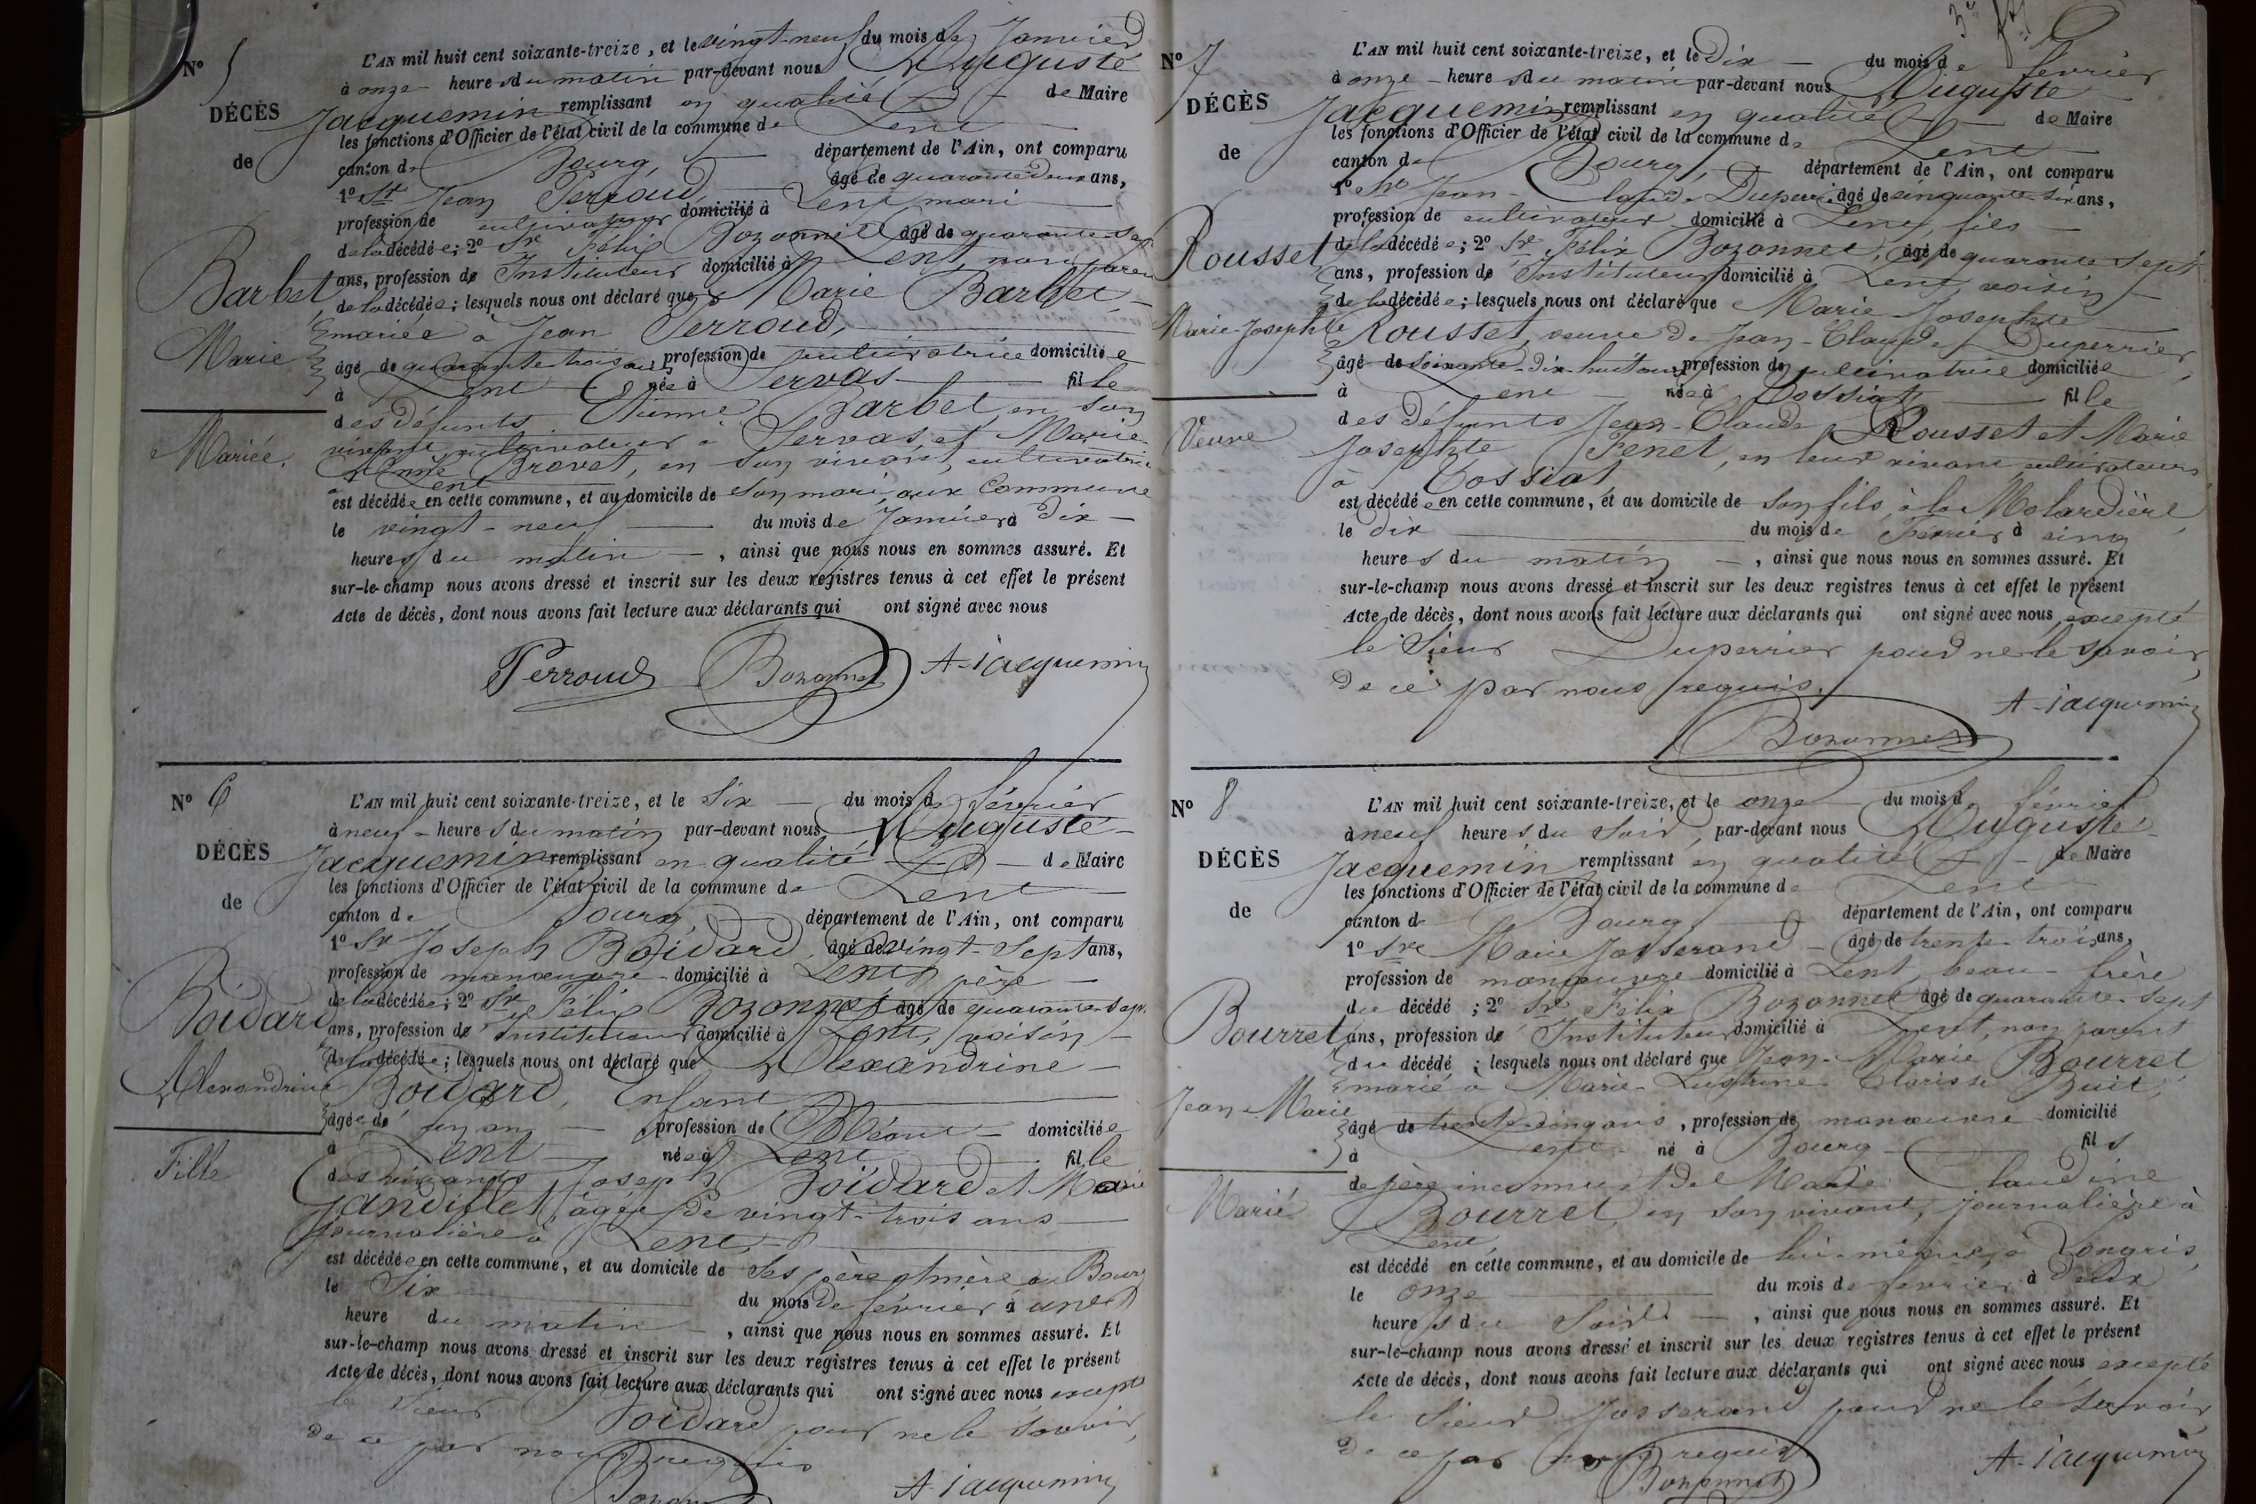 Nº 5
DÉCÈS
de
Barbet
Marie
Mariée.
L'AN mil huit cent soixante-treize, et le vingt-neuf du mois de Janvier
à onze heures du matin par-devant nous Auguste
Jacquemin remplissant en qualité de Maire
les fonctions d'Officier de l'état civil de la commune de Lent
canton de Bourg, département de l'Ain, ont comparu
1º Sr Jean Perroud, âgé de quarante deux ans,
profession de cultivateur domicilié à Lent mari
de la décédée; 2º Sr Félix Bozonnet âgé de quarante sept
ans, profession de Instituteur domicilié à Lent, non parent
de la décédée; lesquels nous ont déclaré que Marie Barbet
mariée à Jean Perroud,
âgé de quarante trois ans, profession de cultivatrice domiciliée
à Lent née à Servas fille
des défunts Etienne Barbet, en son
vivant cultivateur à Servas, et Marie
Brevet, en son vivant, cultivatrice
à Lent
est décédée en cette commune, et au domicile de son mari, aux Commune
le vingt-neuf du mois de Janvier à dix
heures du matin, ainsi que nous nous en sommes assuré. Et
sur-le-champ nous avons dressé et inscrit sur les deux registres tenus à cet effet le présent
Acte de décès, dont nous avons fait lecture aux déclarants qui ont signé avec nous
Perroud Bozonnet A. Jacquemin
Nº 6
DÉCÈS
de
Boidard
Alexandrine
Fille
L'AN mil huit cent soixante-treize, et le Six du mois de février
à neuf heures du matin par-devant nous Auguste
Jacquemin remplissant en qualité de Maire
les fonctions d'Officier de l'état civil de la commune de Lent
canton de Bourg, département de l'Ain, ont comparu
1º Sr Joseph Boidard, âgé de vingt-sept ans,
profession de manœuvre domicilié à Lent, père
de la décédée; 2º Sr Félix Bozonnet âgé de quarante-sept
ans, profession de Instituteur domicilié à Lent, voisin
de la décédée; lesquels nous ont déclaré que Alexandrine
Boidard, Enfant
âgée de un an profession de Néant domiciliée
à Lent née à Lent fille
des vivants Joseph Boidard et Marie
Gandillet, âgée de vingt-trois ans
journalière à Lent,
est décédée en cette commune, et au domicile de ses père et mère au Bourg
le Six du mois de février à une
heure du matin, ainsi que nous nous en sommes assuré. Et
sur-le-champ nous avons dressé et inscrit sur les deux registres tenus à cet effet le présent
Acte de décès, dont nous avons fait lecture aux déclarants qui ont signé avec nous excepté
le Sieur Boidard pour ne le savoir,
de ce par nous requis
Bozonnet A. Jacquemin
3e
Nº 7
DÉCÈS
de
Rousset
Marie Josephte
Veuve
L'AN mil huit cent soixante-treize, et le Dix du mois de février
à onze heures du matin par-devant nous Auguste
Jacquemin remplissant en qualité de Maire
les fonctions d'Officier de l'état civil de la commune de Lent
canton de Bourg, département de l'Ain, ont comparu
1º Sr Jean-Claude Duperrier âgé de cinquante six ans,
profession de cultivateur domicilié à Lent, fils
de la décédée; 2º Sr Félix Bozonnet, âgé de quarante sept
ans, profession de Instituteur domicilié à Lent, voisin
de la décédée; lesquels nous ont déclaré que Marie Josephte
Rousset, veuve de Jean-Claude Duperrier,
âgé de soixante-dix-huit ans, profession de cultivatrice domiciliée
à Lent née à Tossiat fille
des défunts Jean-Claude Rousset et Marie
Josephte Penet, en leur vivant cultivateurs
à Tossiat
est décédée en cette commune, et au domicile de son fils, à la Molardière,
le dix du mois de Février à cinq
heures du matin, ainsi que nous nous en sommes assuré. Et
sur-le-champ nous avons dressé et inscrit sur les deux registres tenus à cet effet le présent
Acte de décès, dont nous avons fait lecture aux déclarants qui ont signé avec nous, excepté
le Sieur Duperrier pour ne le savoir,
de ce par nous requis.
Bozonnet A. Jacquemin
Nº 8
DÉCÈS
de
Bourret
Jean-Marie
Marié
L'AN mil huit cent soixante-treize, et le onze du mois de février
à neuf heures du soir, par-devant nous Auguste
Jacquemin remplissant en qualité de Maire
les fonctions d'Officier de l'état civil de la commune de Lent
canton de Bourg département de l'Ain, ont comparu
1º Sr Marie Josserand âgé de trente trois ans,
profession de manœuvre domicilié à Lent, beau-frère
du décédé; 2º Sr Félix Bozonnet âgé de quarante-sept
ans, profession de Instituteur domicilié à Lent, non parent
du décédé; lesquels nous ont déclaré que Jean-Marie Bourret
marié à Marie- Clarisse Buit,
âgé de trente cinq ans, profession de manœuvre domicilié
à Lent né à Bourg fils
de père inconnu et de Marie Claudine
Bourret, en son vivant, journalière à
Lent
est décédé en cette commune, et au domicile de lui-même, à Longris,
le onze du mois de février à deux
heures du soir, ainsi que nous nous en sommes assuré. Et
sur-le-champ nous avons dressé et inscrit sur les deux registres tenus à cet effet le présent
Acte de décès, dont nous avons fait lecture aux déclarants qui ont signé avec nous, excepté
le Sieur Josserand pour ne le savoir
de ce par nous requis
Bozonnet A. Jacquemin